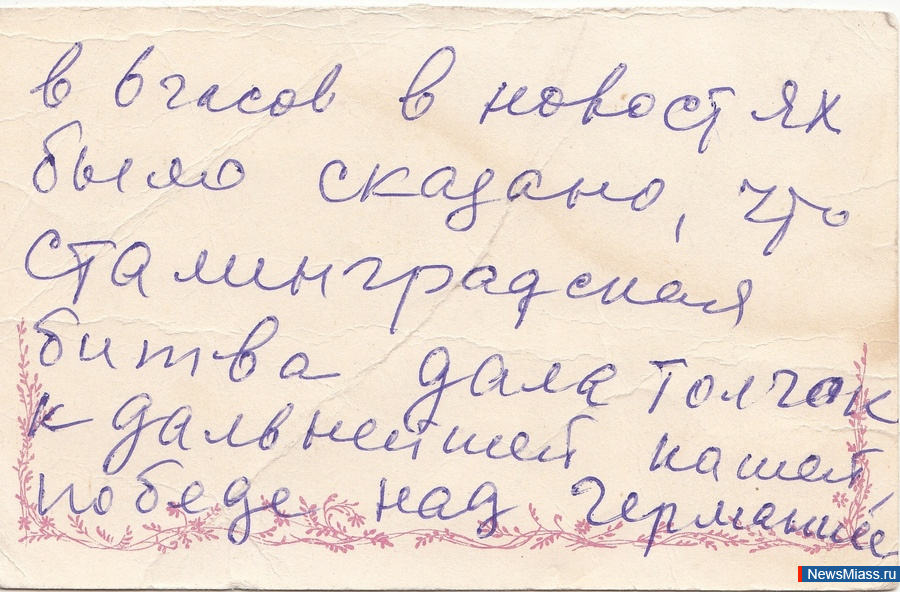 в 6 часов в новостях
было сказано, что
сталинградская
битва дала толчок
к дальнейшей нашей
победе над Германией
NewsMiass.ru